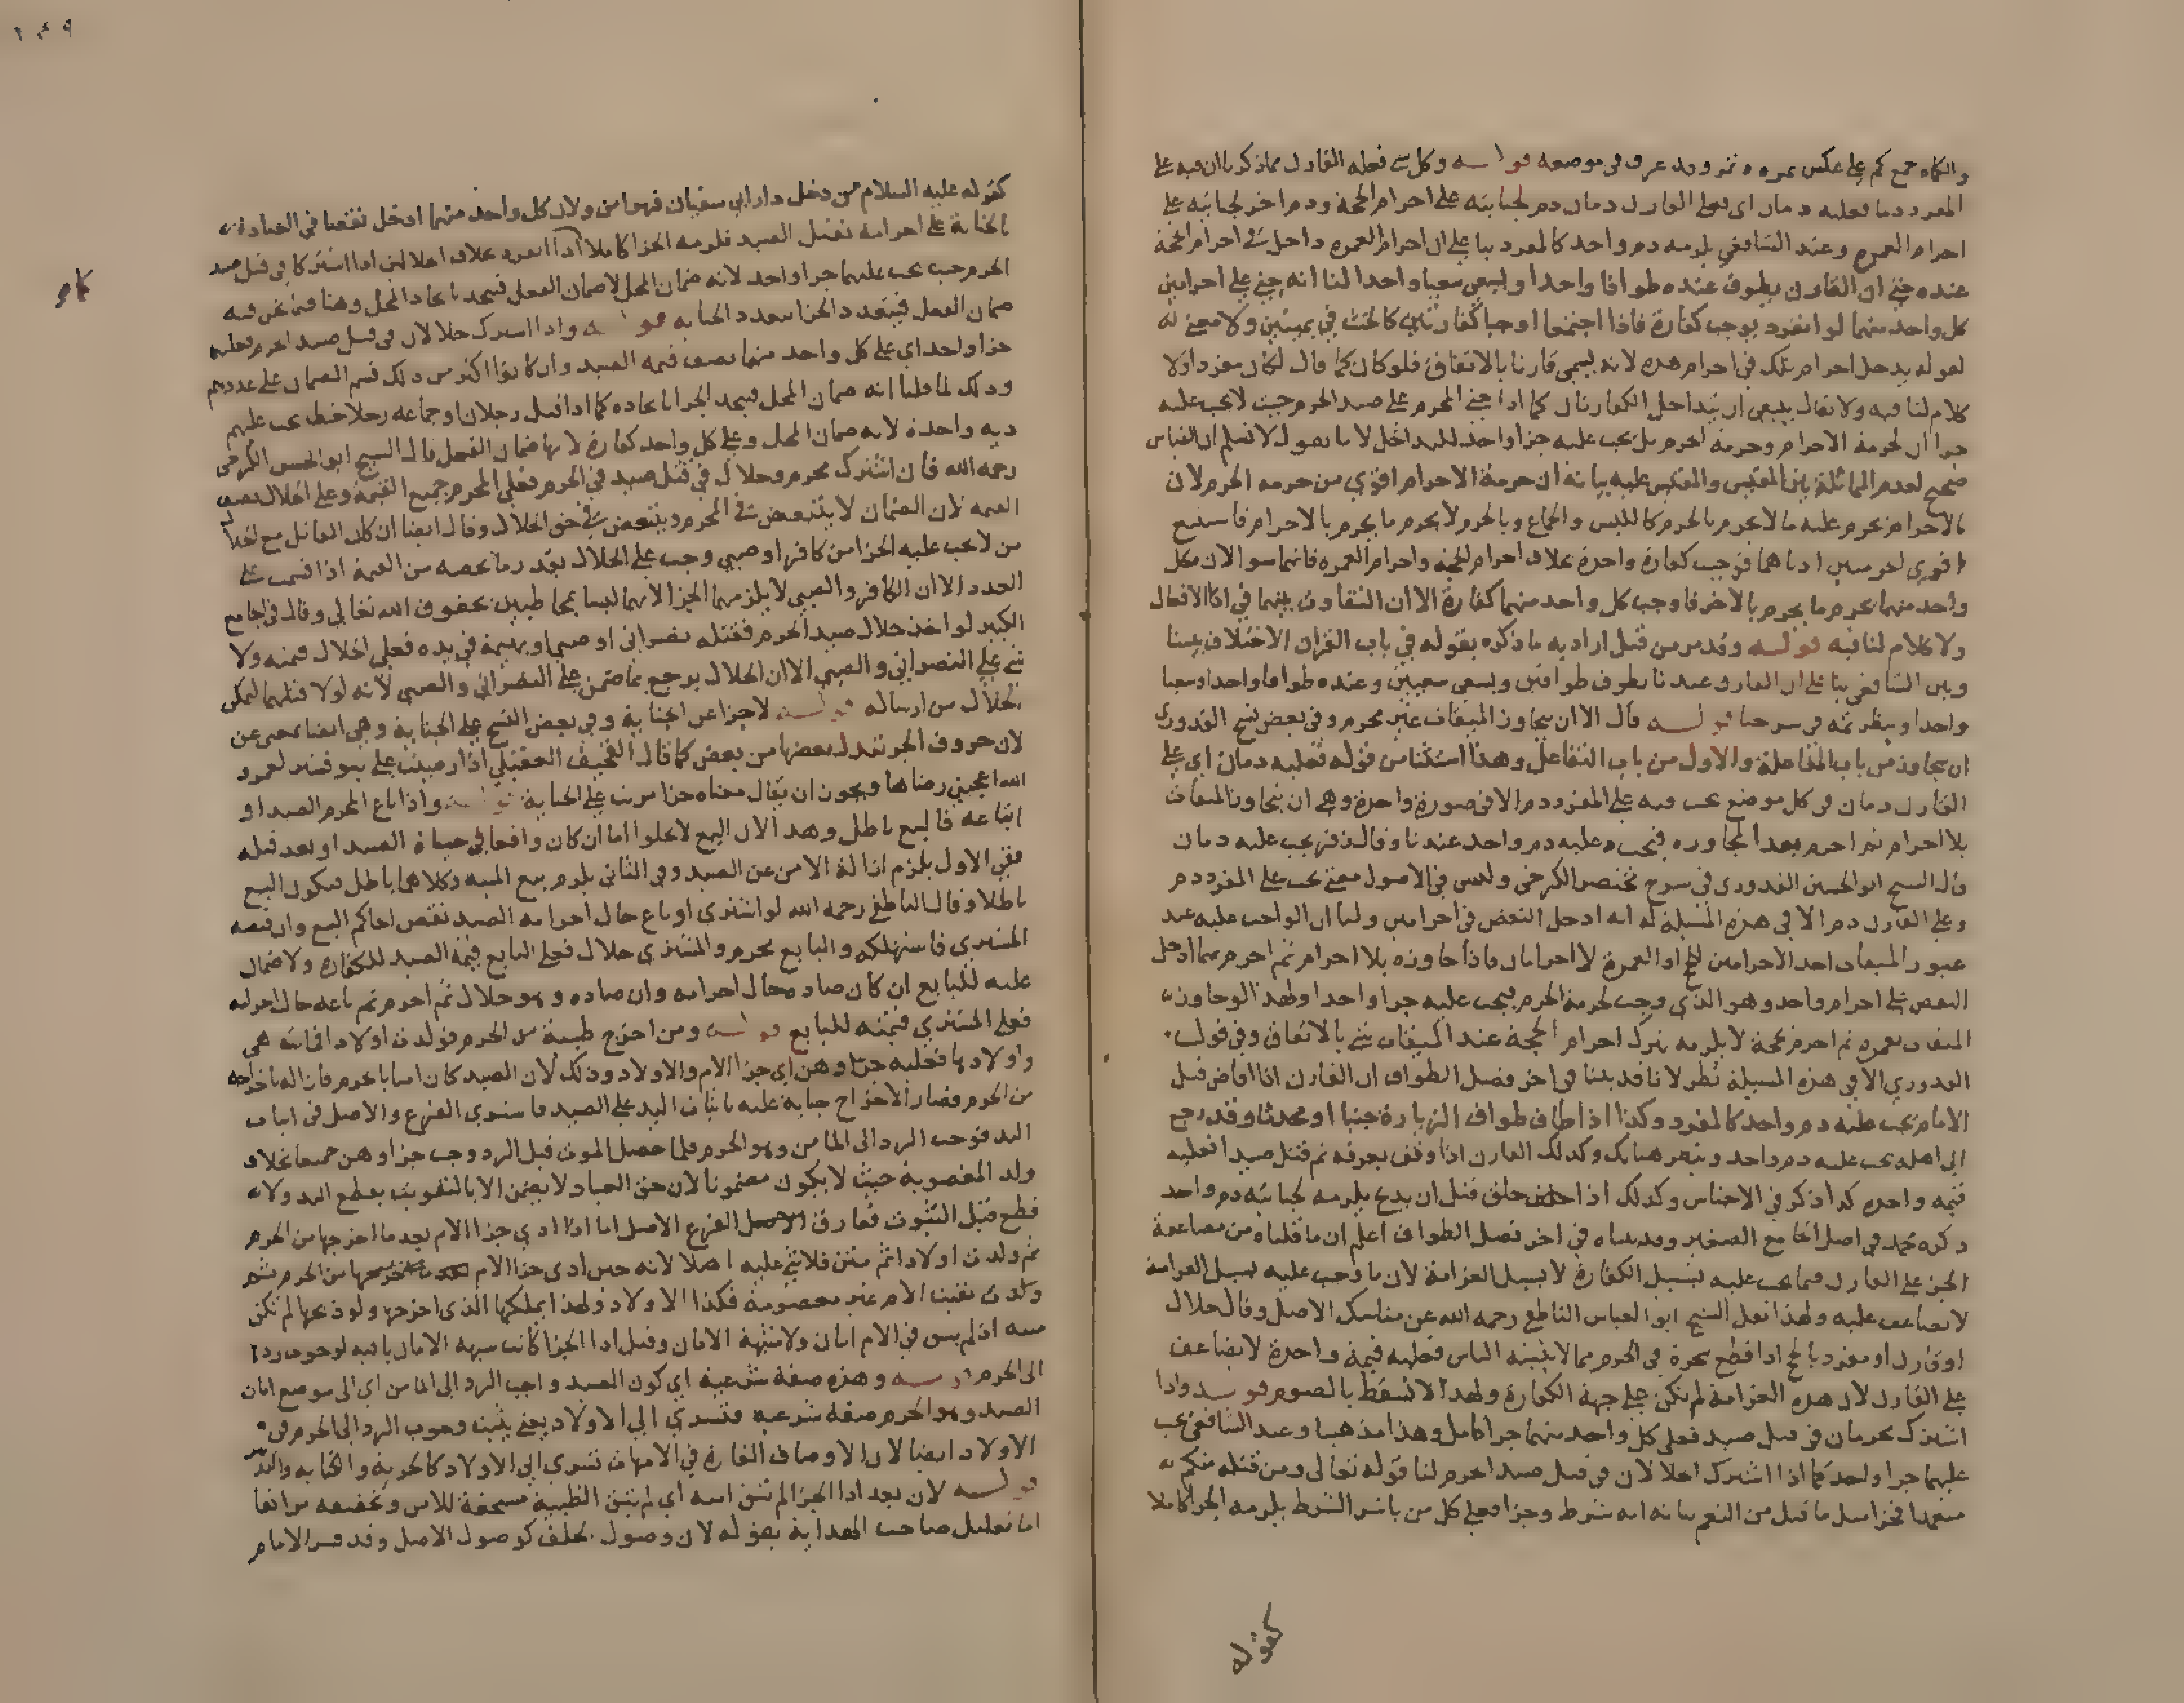 والكماه جمع كم على عكس تمره وتمر وقد عرف في موضعه قوله وكل شي فعله القارن مما ذكرنا ان فيه على
المفرد دما فعليه دمان اي فعلى القارن دمان دم لجنايته على احرام الحجة ودم اخر لجنايته على
احرام العمره وعند الشافعي يلزمه دم واحد كالمفرد بنا على ان احرام العمره داخل في احرام الحجة
عنده حتى ان القارن يطوف عنده طوافا واحدا ويسعى سعيا واحدا لنا انه جنى على احرامين
كل واحد منهما لو انفرد يوجب كفارة فاذا اجتمعا اوجبا كفارتين كالحنث في يمينين ولا معنى له
لقوله يدخل احرام تلك في احرام هذه لانه يسمى قارنا بالاتفاق فلو كان كما قال لكان مفردا ولا
كلام لنا فيه ولا يقال ينبغي ان يتداخل الكفارتان كما اذا جنى المحرم على صيد الحرم حيث لا يجب عليه
جزا ان لحرمة الاحرام وحرمة الحرم بل يجب عليه جزا واحد للتداخل لانا نقول لا نسلم ان القياس
صحيح لعدم المماثلة بين المقيس والمقيس عليه بيانه ان حرمة الاحرام اقوى من حرمه الحرم لان
بالاحرام يحرم عليه ما لا يحرم بالحرم كاللبس والجماع وبالحرم لا يحرم ما يحرم بالاحرام فاستتبع
اقوى الحرمتين ادناهما فوجبت كفارة واحدة بخلاف احرام الحجة واحرام العمره فانهما سوا لان بكل
واحد منهما يحرم ما يحرم بالاخر فاوجب كل واحد منهما كفارة الا ان التفاوت بينهما في اداالافعال
ولا كلام لنا فيه قوله وقد مر من قبل اراد به ما ذكره بقوله في باب القران الاختلاف بيننا
وبين الشافعي بنا على ان القارن عندنا يطوف طوافين ويسعى سعيين وعنده طوافا واحدا وسعيا
واحدا وينظر ثمه في شرحنا قوله قال الا ان يتجاوز الميقات غير محرم وفي بعض نسخ القدوري
ان يجاوز من باب المفاعلة والاول من باب التفاعل وهذا استثنا من قوله فعليه دمان اي على
القارن دمان في كل موضع يجب فيه على المفرد دم الا في صورة واحدة وهي ان يتجاوز الميقات
بلا احرام ثم احرم بعد المجاوزه فيجب عليه دم واحد عندنا وقال زفر يجب عليه دمان
قال الشيخ ابو الحسين القدوري في شرح مختصر الكرخي وليس في الاصول معنى يجب على المفرد دم
وعلى القارن دم الا في هذه المسيلة له انه ادخل النقص في احرامين ولنا ان الواجب عليه عند
عبور الميقات احد الاحرامين الحج او العمرة لا احرامان فاذا جاوزه بلا احرام ثم احرم بهما ادخل
النقص على احرام واحد وهو الذي وجب لحرمة الحرم فيجب عليه جزا واحد ولهذا لو جاوز
الميقات بعمره ثم احرم بحجة لا يلزمه بترك احرام الحجة عند الميقات شي بالاتفاق وفي قول
القدوري الا في هذه المسيلة نظر لانا قد بينا في اخر فصل الطواف ان القارن اذا افاض قبل
الامام يجب عليه دم واحد كالمفرد وكذا اذا طاف طواف الزيارة جنبا او محدثا وقد رجع
الى اهله يجب عليه دم واحد وينظر هنالك وكذلك القارن اذا وقف بعرفه ثم قتل صيدا فعليه
قيمه واحده كذا ذكر في الاجناس وكذلك اذا حلق قبل ان يذبح يلزمه لجنايته دم واحد
ذكره محمد في اصل الجامع الصغير وقد بيناه في اخر فصل الطواف اعلم ان ما قلناه من مضاعفة
الجزا على القارن فيما يجب عليه بسبيل الكفارة لا بسبيل الغرامة لان ما وجب عليه بسبيل الغرامة
لا يضاعف عليه ولهذا نقل الشيخ ابو العباس الناطفي رحمه الله عن مناسك الاصل وقال حلال
او قارن او مفرد بالحج اذا قطع شجرة في الحرم مما لا ينبته الناس فعليه قيمة واحدة لا يضاعف
على القارن لان هذه الغرامة لم تكن على جهة الكفارة ولهذا لا تسقط بالصوم قوله واذا
اشترك محرمان في قتل صيد فعلى كل واحد منهما جزا كامل وهذا مذهبنا وعند الشافعي يجب
عليهما جزا واحد كما اذا اشترك حلالان في قتل صيد الحرم لنا قوله تعالى ومن قتله منكم
متعمدا فجزا مثل ما قتل من النعم بيانه انه شرط وجزا فعلى كل من باشر الشرط يلزمه الجزا كاملا
كقوله
١٤٩
كقوله عليه السلام من دخل دار ابي سفيان فهو امن ولان كل واحد منهما ادخل نقصا في العبادة
بالجناية على احرامه بقتل الصيد فلزمه الجزا كاملا اذا انفرد بخلاف الحلالين اذا اشتركا في قتل صيد
الحرم حيث يجب عليهما جزا واحد لانه ضمان المحل لا ضمان الفعل فيتحد باتحاد المحل وهنا فيما نحن فيه
ضمان الفعل فيتعدد الجزا بتعدد الجنايه قوله واذا اشترك حلالان في قتل صيد الحرم فعليهما
جزا واحد اي على كل واحد منهما نصف قيمه الصيد وان كانوا اكثر من ذلك قسم الضمان على عددهم
وذلك لما قلنا انه ضمان المحل فيتحد الجزا باتحاده كما اذا قتل رجلان او جماعه رجلا خطا يجب عليهم
ديه واحدة لانه ضمان المحل وعلى كل واحد كفارة لانها ضمان الفعل قال الشيخ ابو الحسن الكرخي
رحمه الله فان اشترك محرم وحلال في قتل صيد في الحرم فعلى المحرم جميع القيمة وعلى الحلال نصف
القيمه لان الضمان لا يتبعض في المحرم ويتبعض في حق الحلال وقال ايضا ان كان القاتل مع الحلال
من لا يجب عليه الجزا من كافر او صبي وجب على الحلال بقدر ما يخصه من القيمة اذا قسمت على
العدد الا ان الكافر والصبي لا يلزمهما الجزا لانهما ليسا بمخاطبين بحقوق الله تعالى وقال في الجامع
الكبير لو اخذ حلال صيد الحرم فقتله نصراني او صبي او بهيمة في يده فعلى الحلال قيمته ولا
شي على النصراني والصبي الا ان الحلال يرجع بما ضمن على النصراني والصبي لانه لولا قتلهما لتمكن
الحلال من ارساله قوله لاجزا عن الجناية وفي بعض النسخ على الجناية وهي ايضا تجي عن
لان حروف الجر تبدل بعضها من بعض كما قال القحيف العقيلي اذا رضيت علي بنو قشير لعمرو
الله اعجبني رضاها ويجوز ان يقال معناه جزا مرتب على الجناية قوله واذا باع المحرم الصيد او
ابتاعه فالبيع باطل وهذا لان البيع لا يخلوا اما ان كان واقعا في حياة الصيد او بعد قتله
ففي الاول يلزم ازالة الامن عن الصيد وفي الثاني يلزم بيع الميته وكلاهما باطل فيكون البيع
باطلا وقال الناطفي رحمه الله لو اشترى او باع حال احرامه الصيد نقض الحاكم البيع وان قبضه
المشتري فاستهلكه والبايع محرم والمشتري حلال فعلى البايع قيمة الصيد للكفارة ولا ضمان
عليه للبايع ان كان صاده حال احرامه وان صاده وهو حلال ثم احرم ثم باعه حال احرامه
فعلى المشتري قيمته للبايع قوله ومن اخرج ظبية من الحرم فولدت اولادا فماتت هي
واولادها فعليه جزاوهن اي جزا الام والاولاد وذلك لان الصيد كان امنا بالحرم فازاله باخراجه
من الحرم فصار الاخراج جناية عليه باثبات اليد على الصيد فاستوى الفرع والاصل في اثبات
اليد فوجب الرد الى المامن وهو الحرم فلما حصل الموت قبل الرد وجب جزاوهن جميعا بخلاف
ولد المغصوبة حيث لا يكون مضمونا لان حق العباد لا يضمن الا بالتفويت بقطع اليد ولا
قطع قبل الثبوت ففارق الفرع الاصل اما اذا ادي جزا الام بعد ما اخرجها من الحرم
ثم ولدت اولادا ثم متن فلا شي عليه اصلا لانه حين ادى جزا الام خرجها من الحرم ثم
ولدت بقيت الام غير معصومة فكذا الاولاد ولهذا يملكها الذى اخرجها ولو ذبحها لم تكن
ميته اذ لم يبق في الام امان ولا شبهة الامان وقبل ادا الجزا كانت شبهة الامان باقيه لوجوب ردها
الى الحرم قوله وهذه صفة شرعية اي كون الصيد واجب الرد الى المامن اي الى موضع امان
الصيد وهو الحرم صفة شرعيه فتسري الى الاولاد يعني يثبت وجوب الرد الى الحرم في
الاولاد ايضا لان الاوصاف القارة في الامهات تسري الى الاولاد كالحرية والكتابه والتدبير
قوله لان بعد ادا الجزا لم تبق امنه اي لم تبق الظبية مستحقة للامن وتحقيقه مر انفا
اما تعليل صاحب الهداية بقوله لان وصول الخلف كوصول الاصل وقد فسر الامام